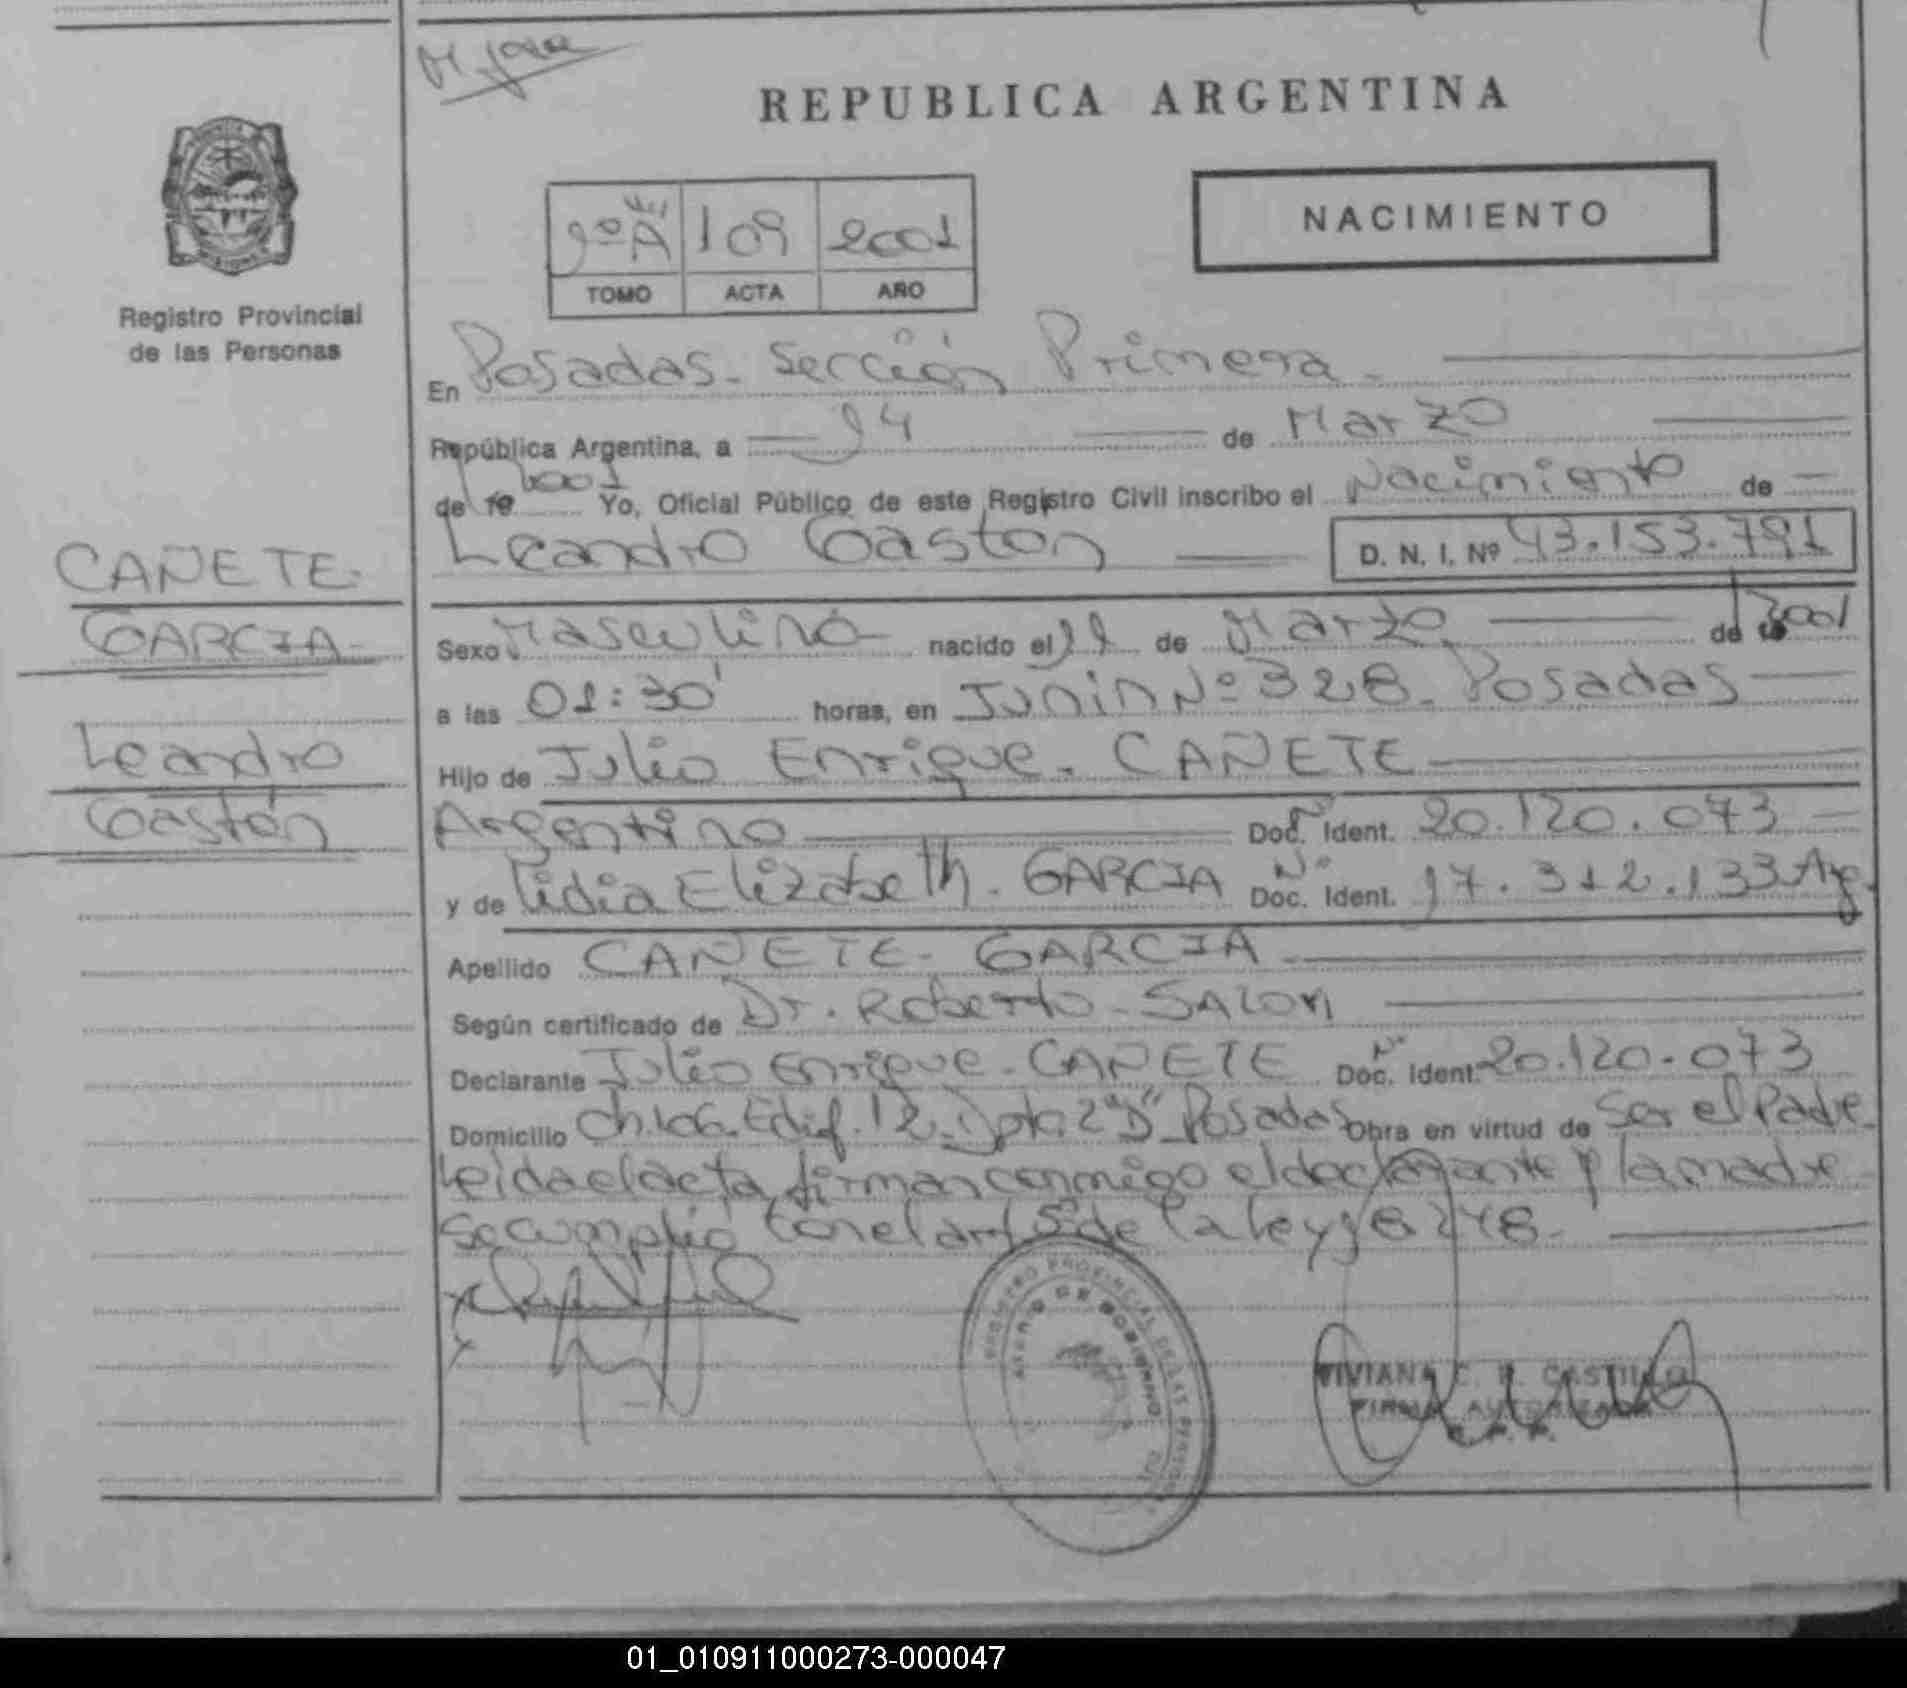 M José
REPUBLICA ARGENTINA
NACIMIENTO
1º A 109 2001
TOMO ACTA AÑO
Registro Provincial
de las Personas
En Posadas - Sección Primera -
República Argentina, a 14 de Marzo
de 19 2001 Yo, Oficial Público de este Registro Civil inscribo el Nacimiento de
Leandro Gaston D. N. I. Nº 43.153.791
CAÑETE
GARCIA
Leandro
Gastón
Sexo Masculino nacido el 11 de Marzo de 2001
a las 01:30' horas, en Junin Nº 328 - Posadas
Hijo de Julio Enrique - CAÑETE
Argentino Nº Doc. Ident. 20.120.073
y de Lidia Elizabeth - GARCIA Nº Doc. Ident. 17.312.133 Arg.
Apellido CAÑETE - GARCIA
Según certificado de Dr. Roberto - SALOM
Declarante Julio Enrique - CAÑETE Nº Doc. Ident. 20.120.073
Domicilio Ch. 106 - Edif. 12 - Dpto. 2 "D" - Posadas Obra en virtud de Ser el Padre -
Leida el acta, firman conmigo el declarante y la madre
se cumplió con el art 5º de la ley 18248 -
REGISTRO PROVINCIAL DE LAS PERSONAS
DE GOBIERNO
VIVIANA C. R. CASTILLO
FIRMA AUTORIZADA
01_010911000273-000047